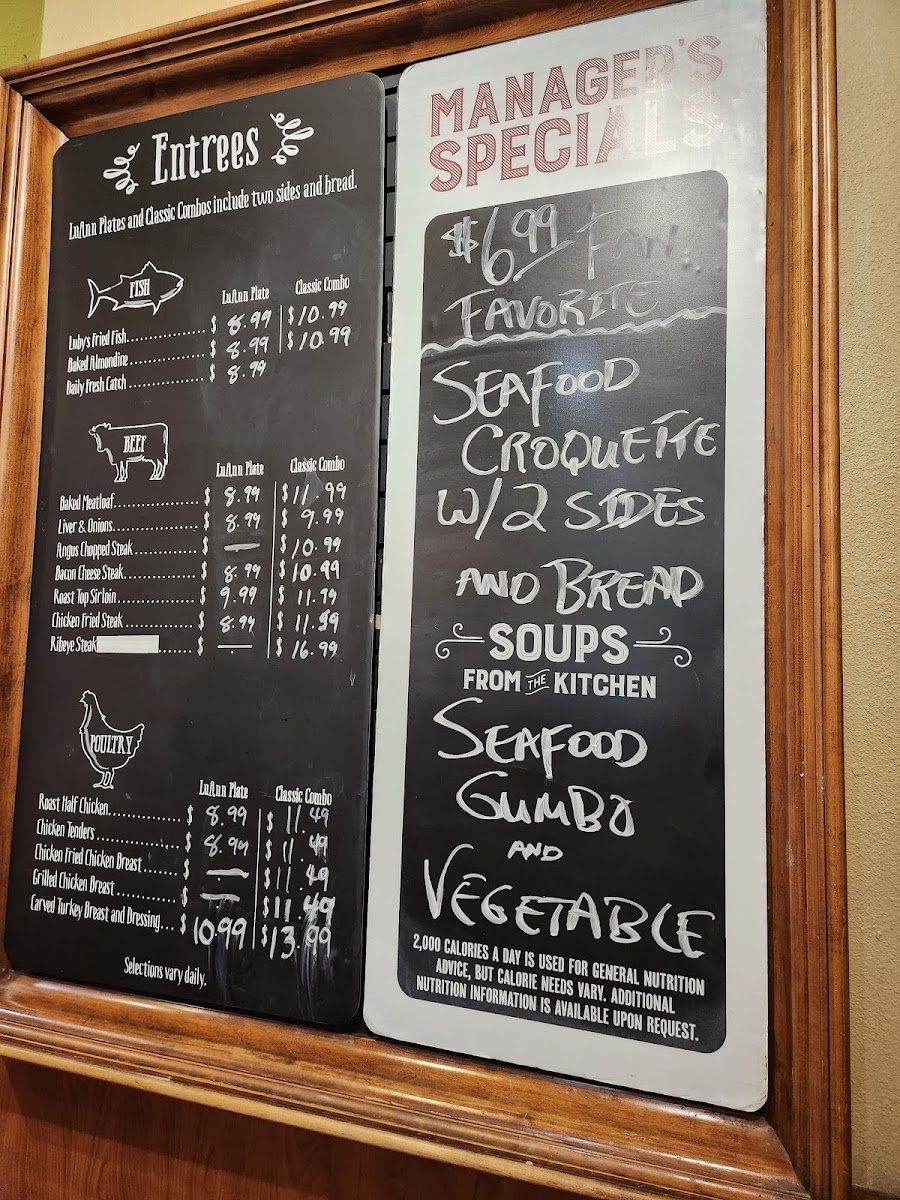 Entrees
LuAnn Plates and Classic Combos include two sides and bread.
FISH
LuAnn Plate Classic Combo
Luby's Fried Fish................ $ 8.99 $10.99
Baked Almondine ................ $ 8.99 $10.99
Daily Fresh Catch ............... $ 8.99
BEEF
LuAnn Plate Classic Combo
Baked Meatloaf.................. $ 8.99 $11.99
Liver & Onions................... $ 8.99 $ 9.99
Angus Chopped Steak.............. $ — $10.99
Bacon Cheese Steak............... $ 8.99 $10.99
Roast Top Sirloin................. $ 9.99 $11.99
Chicken Fried Steak .............. $ 8.99 $11.99
Ribeye Steak ...... $ — $16.99
POULTRY
LuAnn Plate Classic Combo
Roast Half Chicken............... $ 8.99 $11.49
Chicken Tenders ................. $ 8.99 $11.49
Chicken Fried Chicken Breast ...... $ — $11.49
Grilled Chicken Breast ............ $ — $11.49
Carved Turkey Breast and Dressing... $ 10.99 $13.99
Selections vary daily.
MANAGER'S
SPECIALS
$6.99 Fan
FAVORITE
SEAFOOD
CROQUETTE
W/2 SIDES
AND BREAD
SOUPS
FROM THE KITCHEN
SEAFOOD
GUMBO
AND
VEGETABLE
2,000 CALORIES A DAY IS USED FOR GENERAL NUTRITION
ADVICE, BUT CALORIE NEEDS VARY. ADDITIONAL
NUTRITION INFORMATION IS AVAILABLE UPON REQUEST.